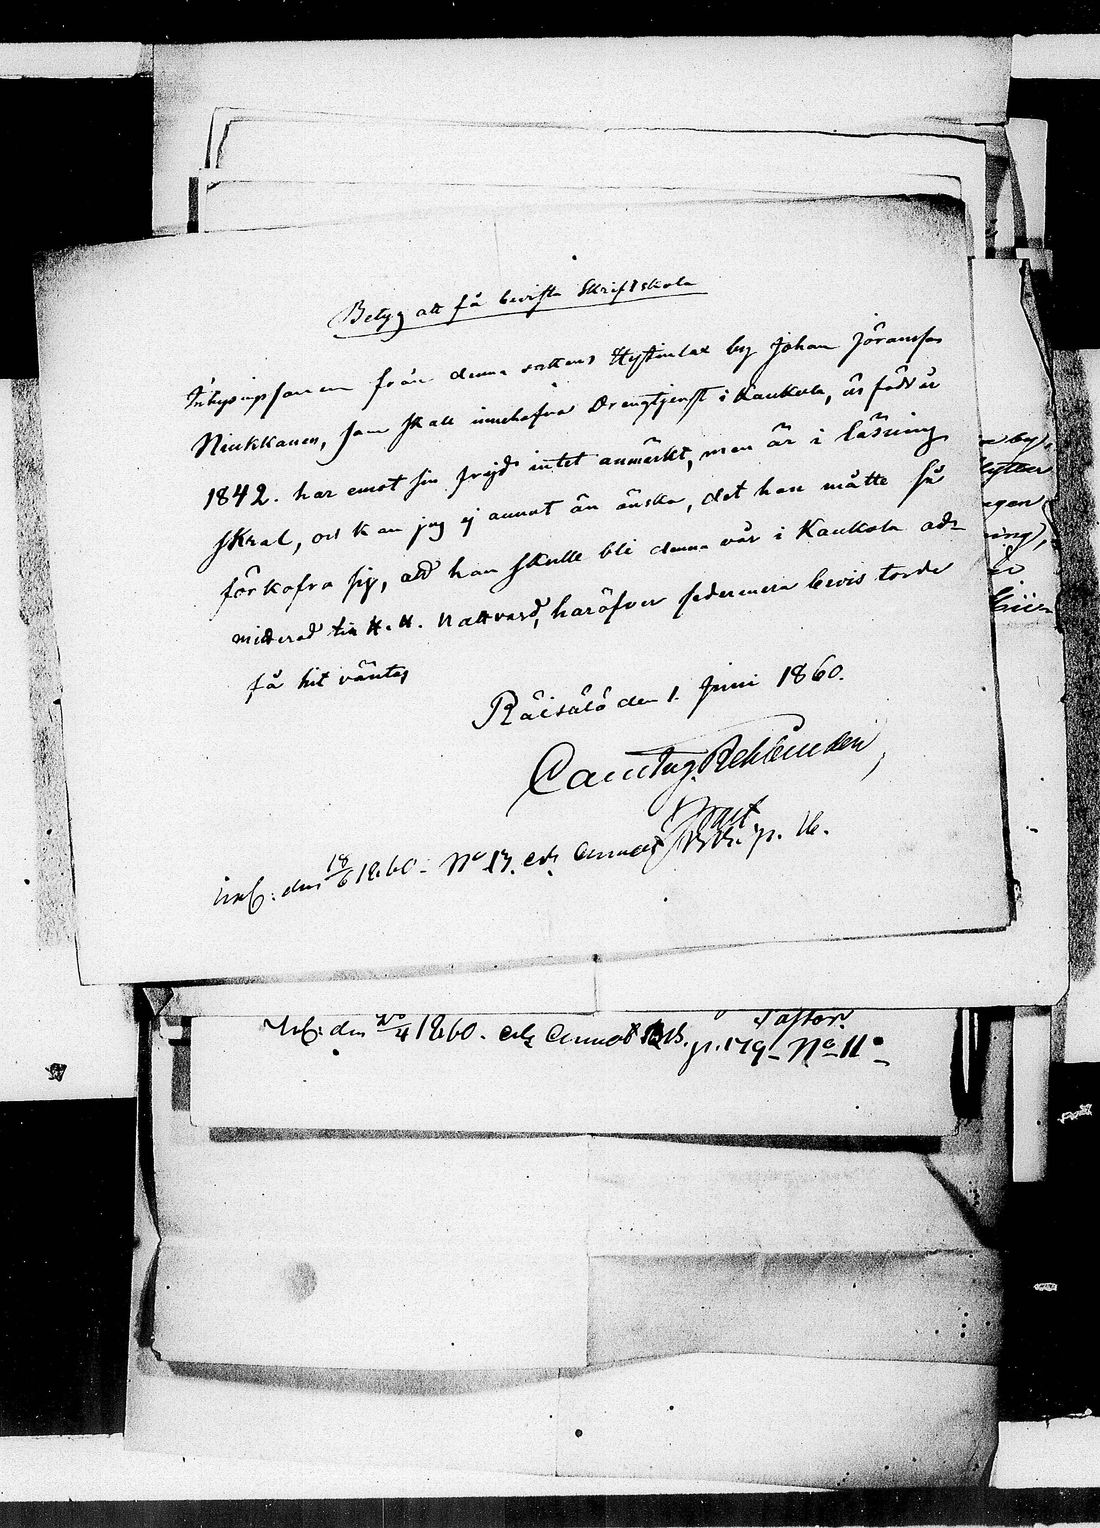 Betyg att få bevista Skriftskola
Inhysingssonen från denna sockens Hytinlax by Johan Jöransson
Niukkanen, som skall innehafva Drengtjenst i Kaukola, är född år
1842. har emot sin frejd intet anmärkt, men är i läsning
skral, och kan jag ej annat än önska, det han måtte så
förkofra sig, att han skulle bli denna vår i Kaukola ad-
mitterad till H. H. Nattvard, häröfver sedermera bevis torde
få hit väntas
Räisälä den 1. Juni 1860.
Inl: den 18/6 1860. No 13. och Annot p. 16.
by,
Hytin
ing,
Inl: den 20/4 1860. och Annot p. 179 - No 11.
Pastor.